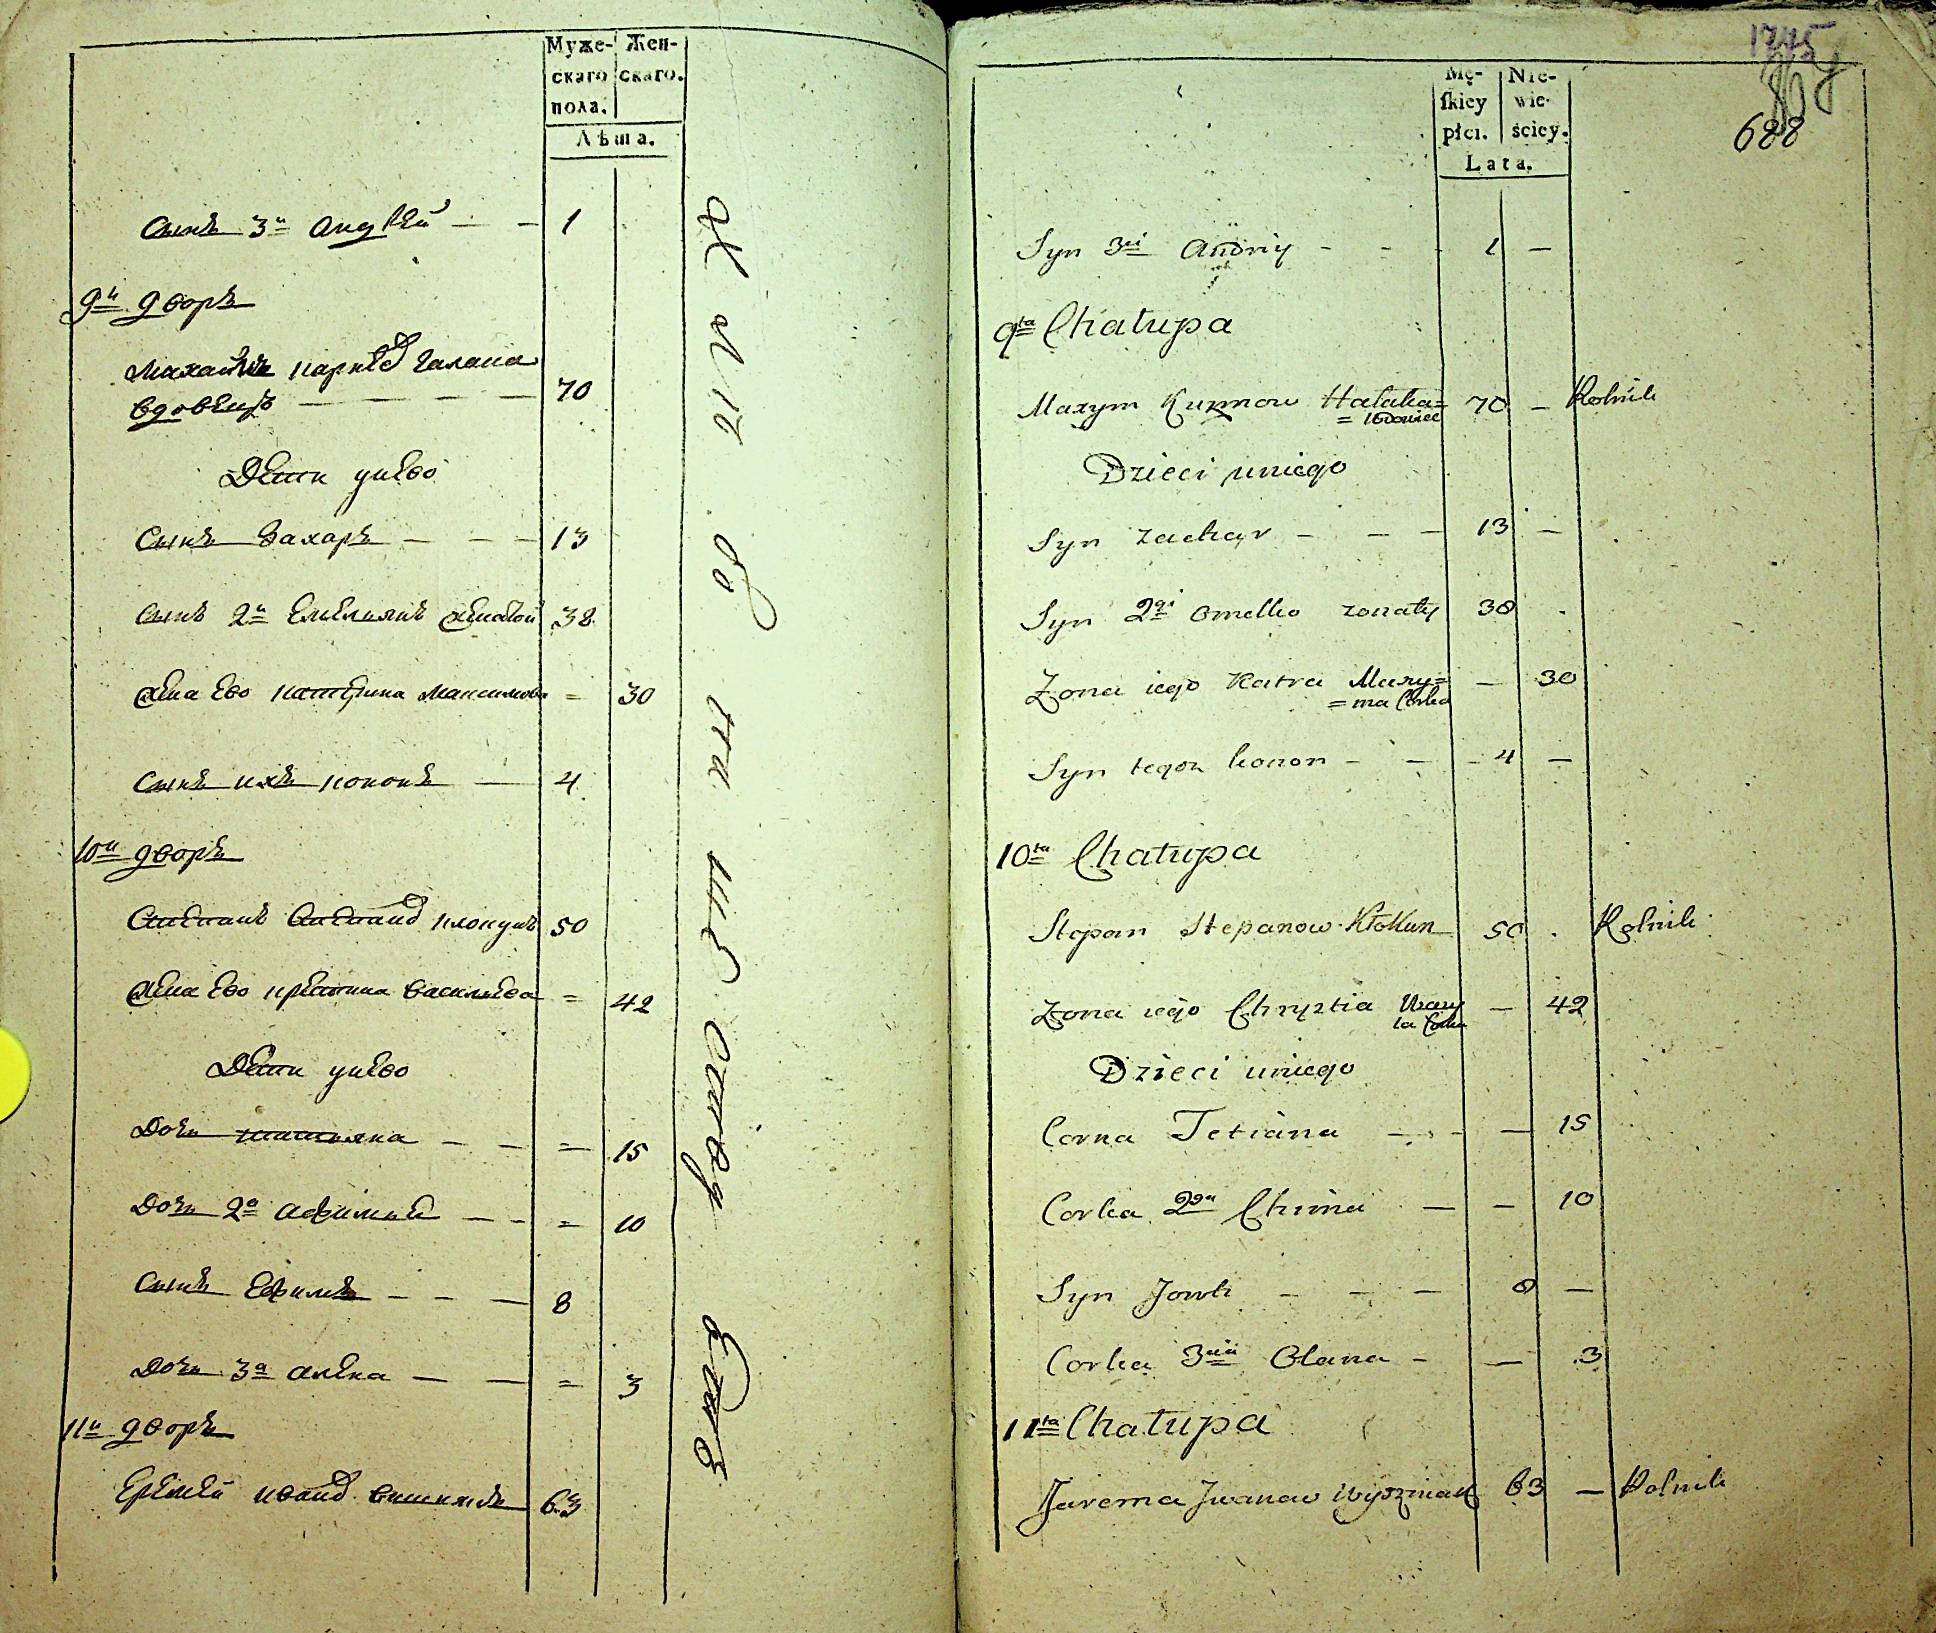 Муже-
скаго
пола.
Жен-
скаго.
Лѣта.
Сынъ 3й Андрей — — 1
9й дворъ
Карпов Галака
вдовецъ — — — — 70
Дети унево
Сынъ Захаръ — — — 13
Сынъ 2й Емельянъ женатой 38
Жена ево Катерина Максимова = 30
Сынъ ихъ Кононъ — 4
10й дворъ
Степанъ Степанов Клокунъ 50
Жена ево Кристина Васильева = 42
Дети унево
Дочь татьяна — — = 15
Дочь 2я Афимия — — = 10
Сынъ Ефимъ — — — 8
Дочь 3я алена — — — = 3
11й дворъ
Еремей Иванов вишнякъ 63
1745
688
Mę-
skiey
płci.
Nie-
wie-
ściey.
Lata.
Syn 3ci Andriy - - - 1 —
9ta Chałupa
Maxym Hałaka= 70 — Rolnik
= Wdowiec
Dzieci uniego
Syn Zachar - - — 13 —
Syn 2gi Omelko zonaty 38 .
Zona iego Katra Maxy= — 30
= ma Corka
Syn tegoz Konon - - - 4 —
10ta Chałupa
Stepan Stepanow Kłokun 50 . Rolnik
Zona iego Chryztia Wasy — 42
la Corka
Dzieci uniego
Corka Tetiana - - - — 15
Corka 2ga Chima — — 10
Syn - - — 8 —
Corka 3cia Olana - — 3
11ta Chałupa
Jarema Iwanow Wyszniak 63 — Rolnik